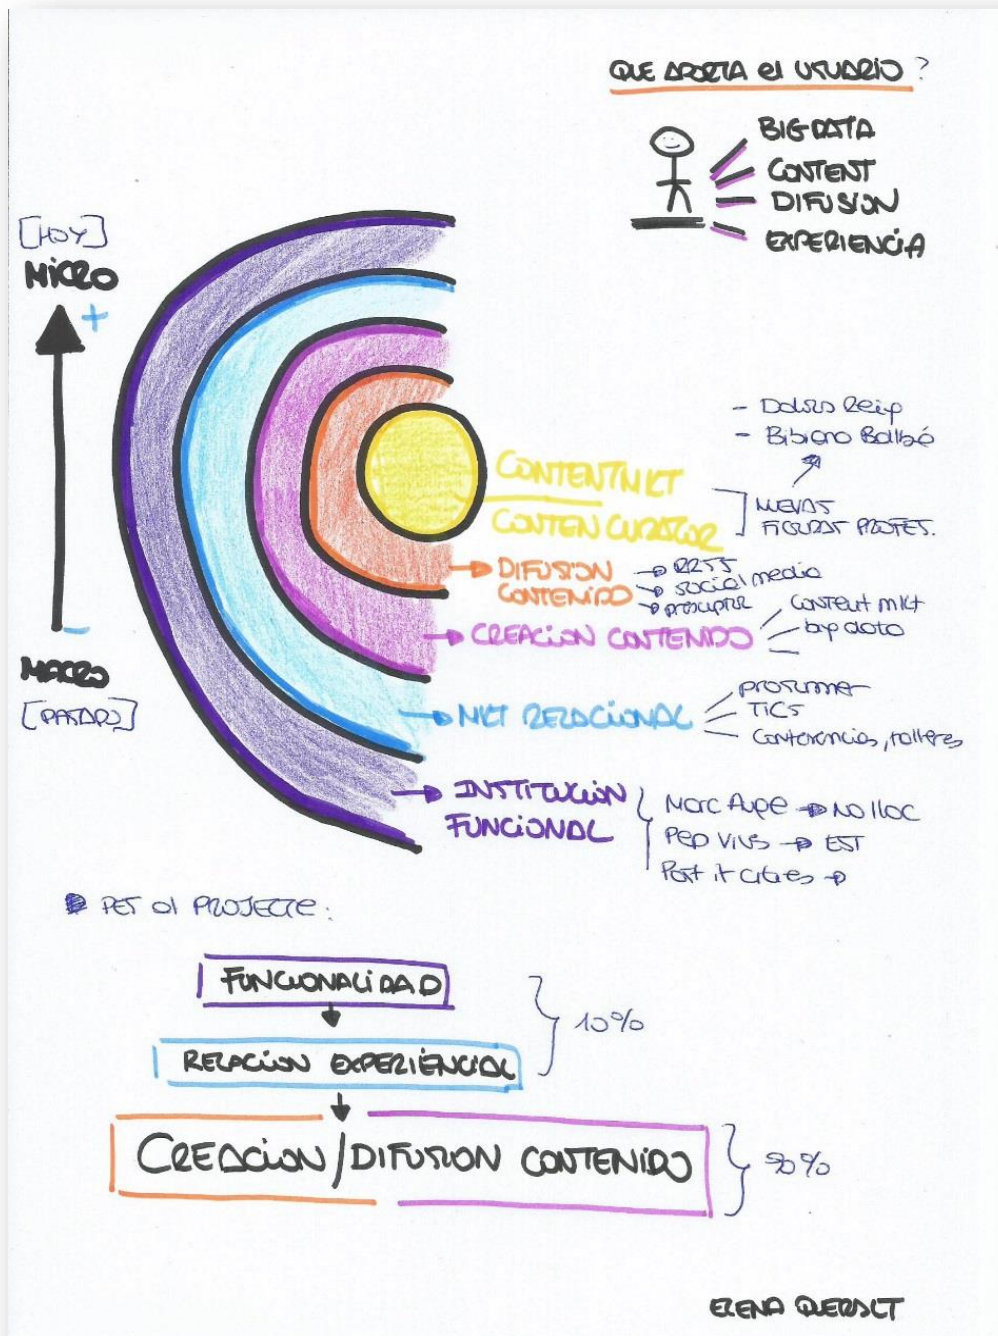 QUE APORTA el USUARIO ?
BIG DATA
CONTENT
DIFUSION
EXPERIENCIA
[HOY]
MICRO
+
-
MACRO
[PASADO]
- Dolors Reig
- Bibiana Ballbé
CONTENT MKT
CONTEN CURATOR
NUEVAS
FIGURAS PROFES.
DIFUSION
CONTENIDO
RRSS
social media
prescriptor
CREACION CONTENIDO
Content mkt
big data
MKT RELACIONAL
prosumer
TICS
Conferencias, talleres
INSTITUCION
FUNCIONAL
Marc Auge → NO lloc
Pep Vivas → EST
Post it cities →
PER al PROJECTE:
FUNCIONALIDAD
10%
RELACION EXPERIÈNCIAL
CREACION/DIFUSION CONTENIDO
90%
ELENA QUERALT